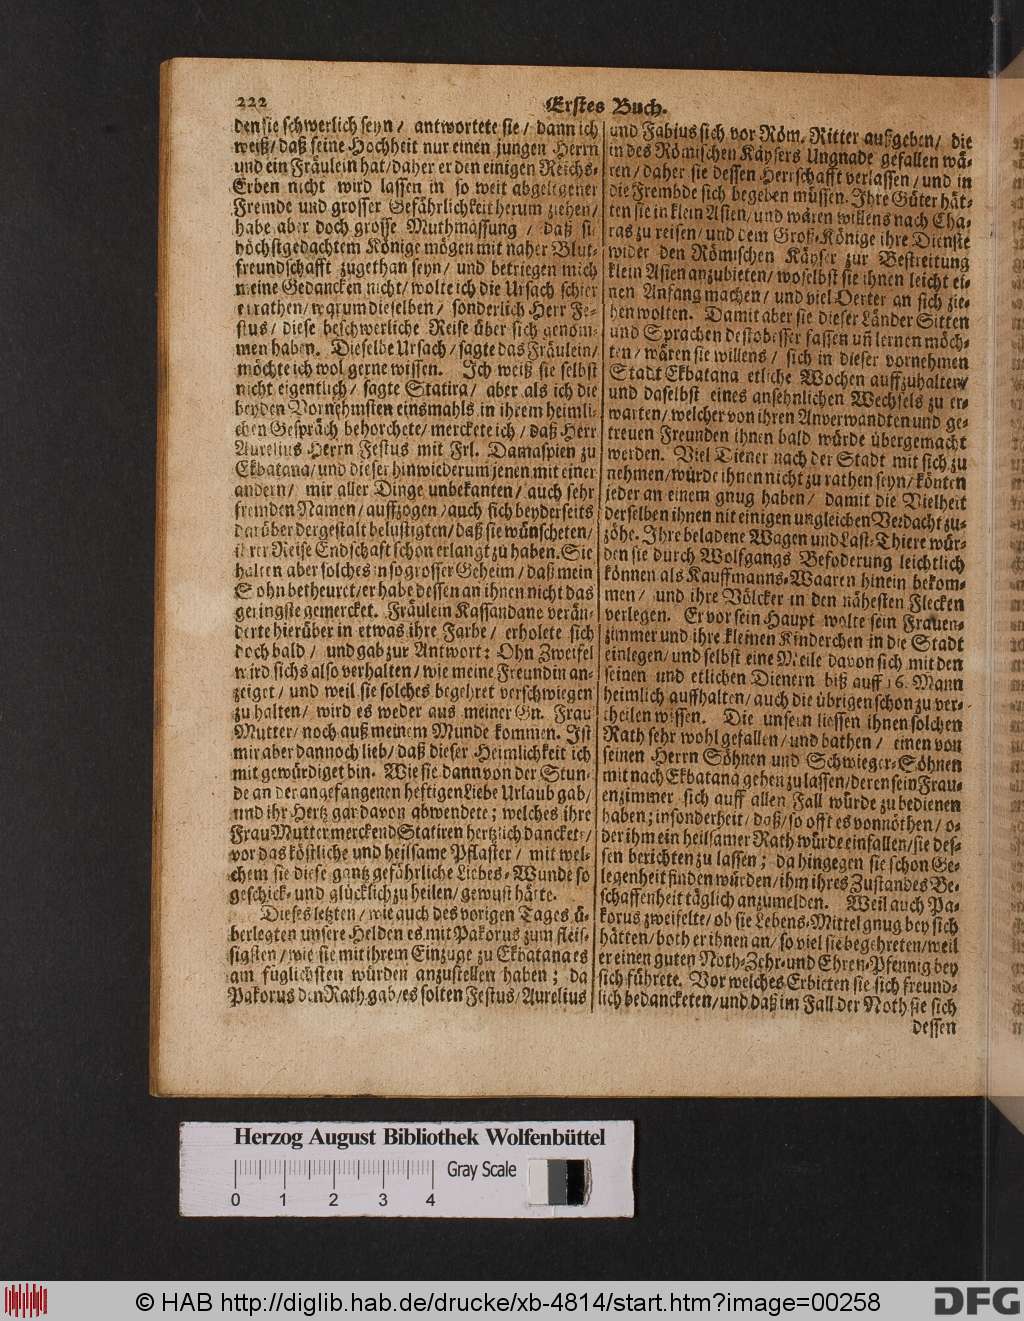 222
Erstes Buch.
den sie schwerlich seyn / antwortete sie / dann ich
weiß / daß seine Hochheit nur einen jungen Herrn
und ein Fräulein hat / daher er den einigen Reichs-
Erben nicht wird lassen in so weit abgelegener
Fremde und grosser Gefährlichkeit herum ziehen /
habe aber doch grosse Muthmassung / daß sie
höchstgedachtem Könige mögen mit naher Blut-
freundschafft zugethan seyn / und betriegen mich
meine Gedancken nicht / wolte ich die Ursach schier
errathen / warum dieselben / sonderlich Herr Fe-
stus / diese beschwerliche Reise über sich genom-
men haben. Dieselbe Ursach / sagte das Fräulein /
möchte ich wol gerne wissen. Ich weiß sie selbst
nicht eigentlich / sagte Statira / aber als ich die
beyden Vornehmsten einsmahls in ihrem heimli-
chen Gespräch behorchete / merckete ich / daß Herr
Aurelius Herrn Festus mit Frl. Damaspien zu
Ekbatana / und dieser hinwiederum jenen mit einer
andern / mir aller Dinge unbekanten / auch sehr
fremden Namen / auffzogen / auch sich beyderseits
darüber dergestalt belustigten / daß sie wünscheten /
ihrer Reise Endschaft schon erlangt zu haben. Sie
halten aber solches in so grosser Geheim / daß mein
Sohn betheuret / er habe dessen an ihnen nicht das
geringste gemercket. Fräulein Kassandane verän-
derte hierüber in etwas ihre Farbe / erholete sich
doch bald / und gab zur Antwort: Ohn Zweifel
wird sichs also verhalten / wie meine Freundin an-
zeiget / und weil sie solches begehret verschwiegen
zu halten / wird es weder aus meiner Gn. Frau
Mutter / noch auß meinem Munde kommen. Ist
mir aber dannoch lieb / daß dieser Heimlichkeit ich
mit gewürdiget bin. Wie sie dann von der Stun-
de an der angefangenen heftigen Liebe Urlaub gab /
und ihr Hertz gar davon abwendete; welches ihre
Frau Mutter merckend Statiren hertzlich danckete /
vor das köstliche und heilsame Pflaster / mit wel-
chem sie diese gantz gefährliche Liebes-Wunde so
geschick- und glücklich zu heilen / gewust hätte.
Dieses letzten / wie auch des vorigen Tages ü-
berlegten unsere Helden es mit Pakorus zum fleis-
sigsten / wie sie mit ihrem Einzuge zu Ekbatana es
am füglichsten würden anzustellen haben; da
Pakorus den Rath gab / es solten Festus / Aurelius
und Fabius sich vor Röm. Ritter außgeben / die
in des Römischen Käysers Ungnade gefallen wä-
ren / daher sie dessen Herrschafft verlassen / und in
die Frembde sich begeben müssen. Ihre Güter hät-
ten sie in klein Asien / und wären willens nach Cha-
ras zu reisen / und dem Groß-Könige ihre Dienste
wider den Römischen Käyser zur Bestreitung
klein Asien anzubieten / woselbst sie ihnen leicht ei-
nen Anfang machen / und viel Oerter an sich zie-
hen wolten. Damit aber sie dieser Länder Sitten
und Sprachen destobesser fassen uñ lernen möch-
ten / wären sie willens / sich in dieser vornehmen
Stadt Ekbatana etliche Wochen auffzuhalten /
und daselbst eines ansehnlichen Wechsels zu er-
warten / welcher von ihren Anverwandten und ge-
treuen Freunden ihnen bald würde übergemacht
werden. Viel Diener nach der Stadt mit sich zu
nehmen / würde ihnen nicht zu rathen seyn / könten
jeder an einem gnug haben / damit die Vielheit
derselben ihnen nit einigen ungleichen Verdacht zu-
zöhe. Ihre beladene Wagen und Last-Thiere wür-
den sie durch Wolfgangs Befoderung leichtlich
können als Kauffmanns-Waaren hinein bekom-
men / und ihre Völcker in den nähesten Flecken
verlegen. Er vor sein Haupt wolte sein Frauen-
zimmer und ihre kleinen Kinderchen in die Stadt
einlegen / und selbst eine Meile davon sich mit den
seinen und etlichen Dienern biß auff 16. Mann
heimlich auffhalten / auch die übrigen schon zu ver-
theilen wissen. Die unsern liessen ihnen solchen
Rath sehr wohl gefallen / und bathen / einen von
seinen Herrn Söhnen und Schwieger-Söhnen
mit nach Ekbatana gehen zu lassen / deren sein Frau-
enzimmer sich auff allen Fall würde zu bedienen
haben; insonderheit / daß / so offt es vonnöthen / o-
der ihm ein heilsamer Rath würde einfallen / sie des-
sen berichten zu lassen; da hingegen sie schon Ge-
legenheit finden würden / ihm ihres Zustandes Be-
schaffenheit täglich anzumelden. Weil auch Pa-
korus zweifelte / ob sie Lebens-Mittel gnug bey sich
hätten / both er ihnen an / so viel sie begehreten / weil
er einen guten Noth-Zehr- und Ehren-Pfennig bey
sich führete. Vor welches Erbieten sie sich freund-
lich bedancketen / und daß im Fall der Noth sie sich
dessen
Herzog August Bibliothek Wolfenbüttel
Gray Scale
0 1 2 3 4
© HAB http://diglib.hab.de/drucke/xb-4814/start.htm?image=00258
DFG